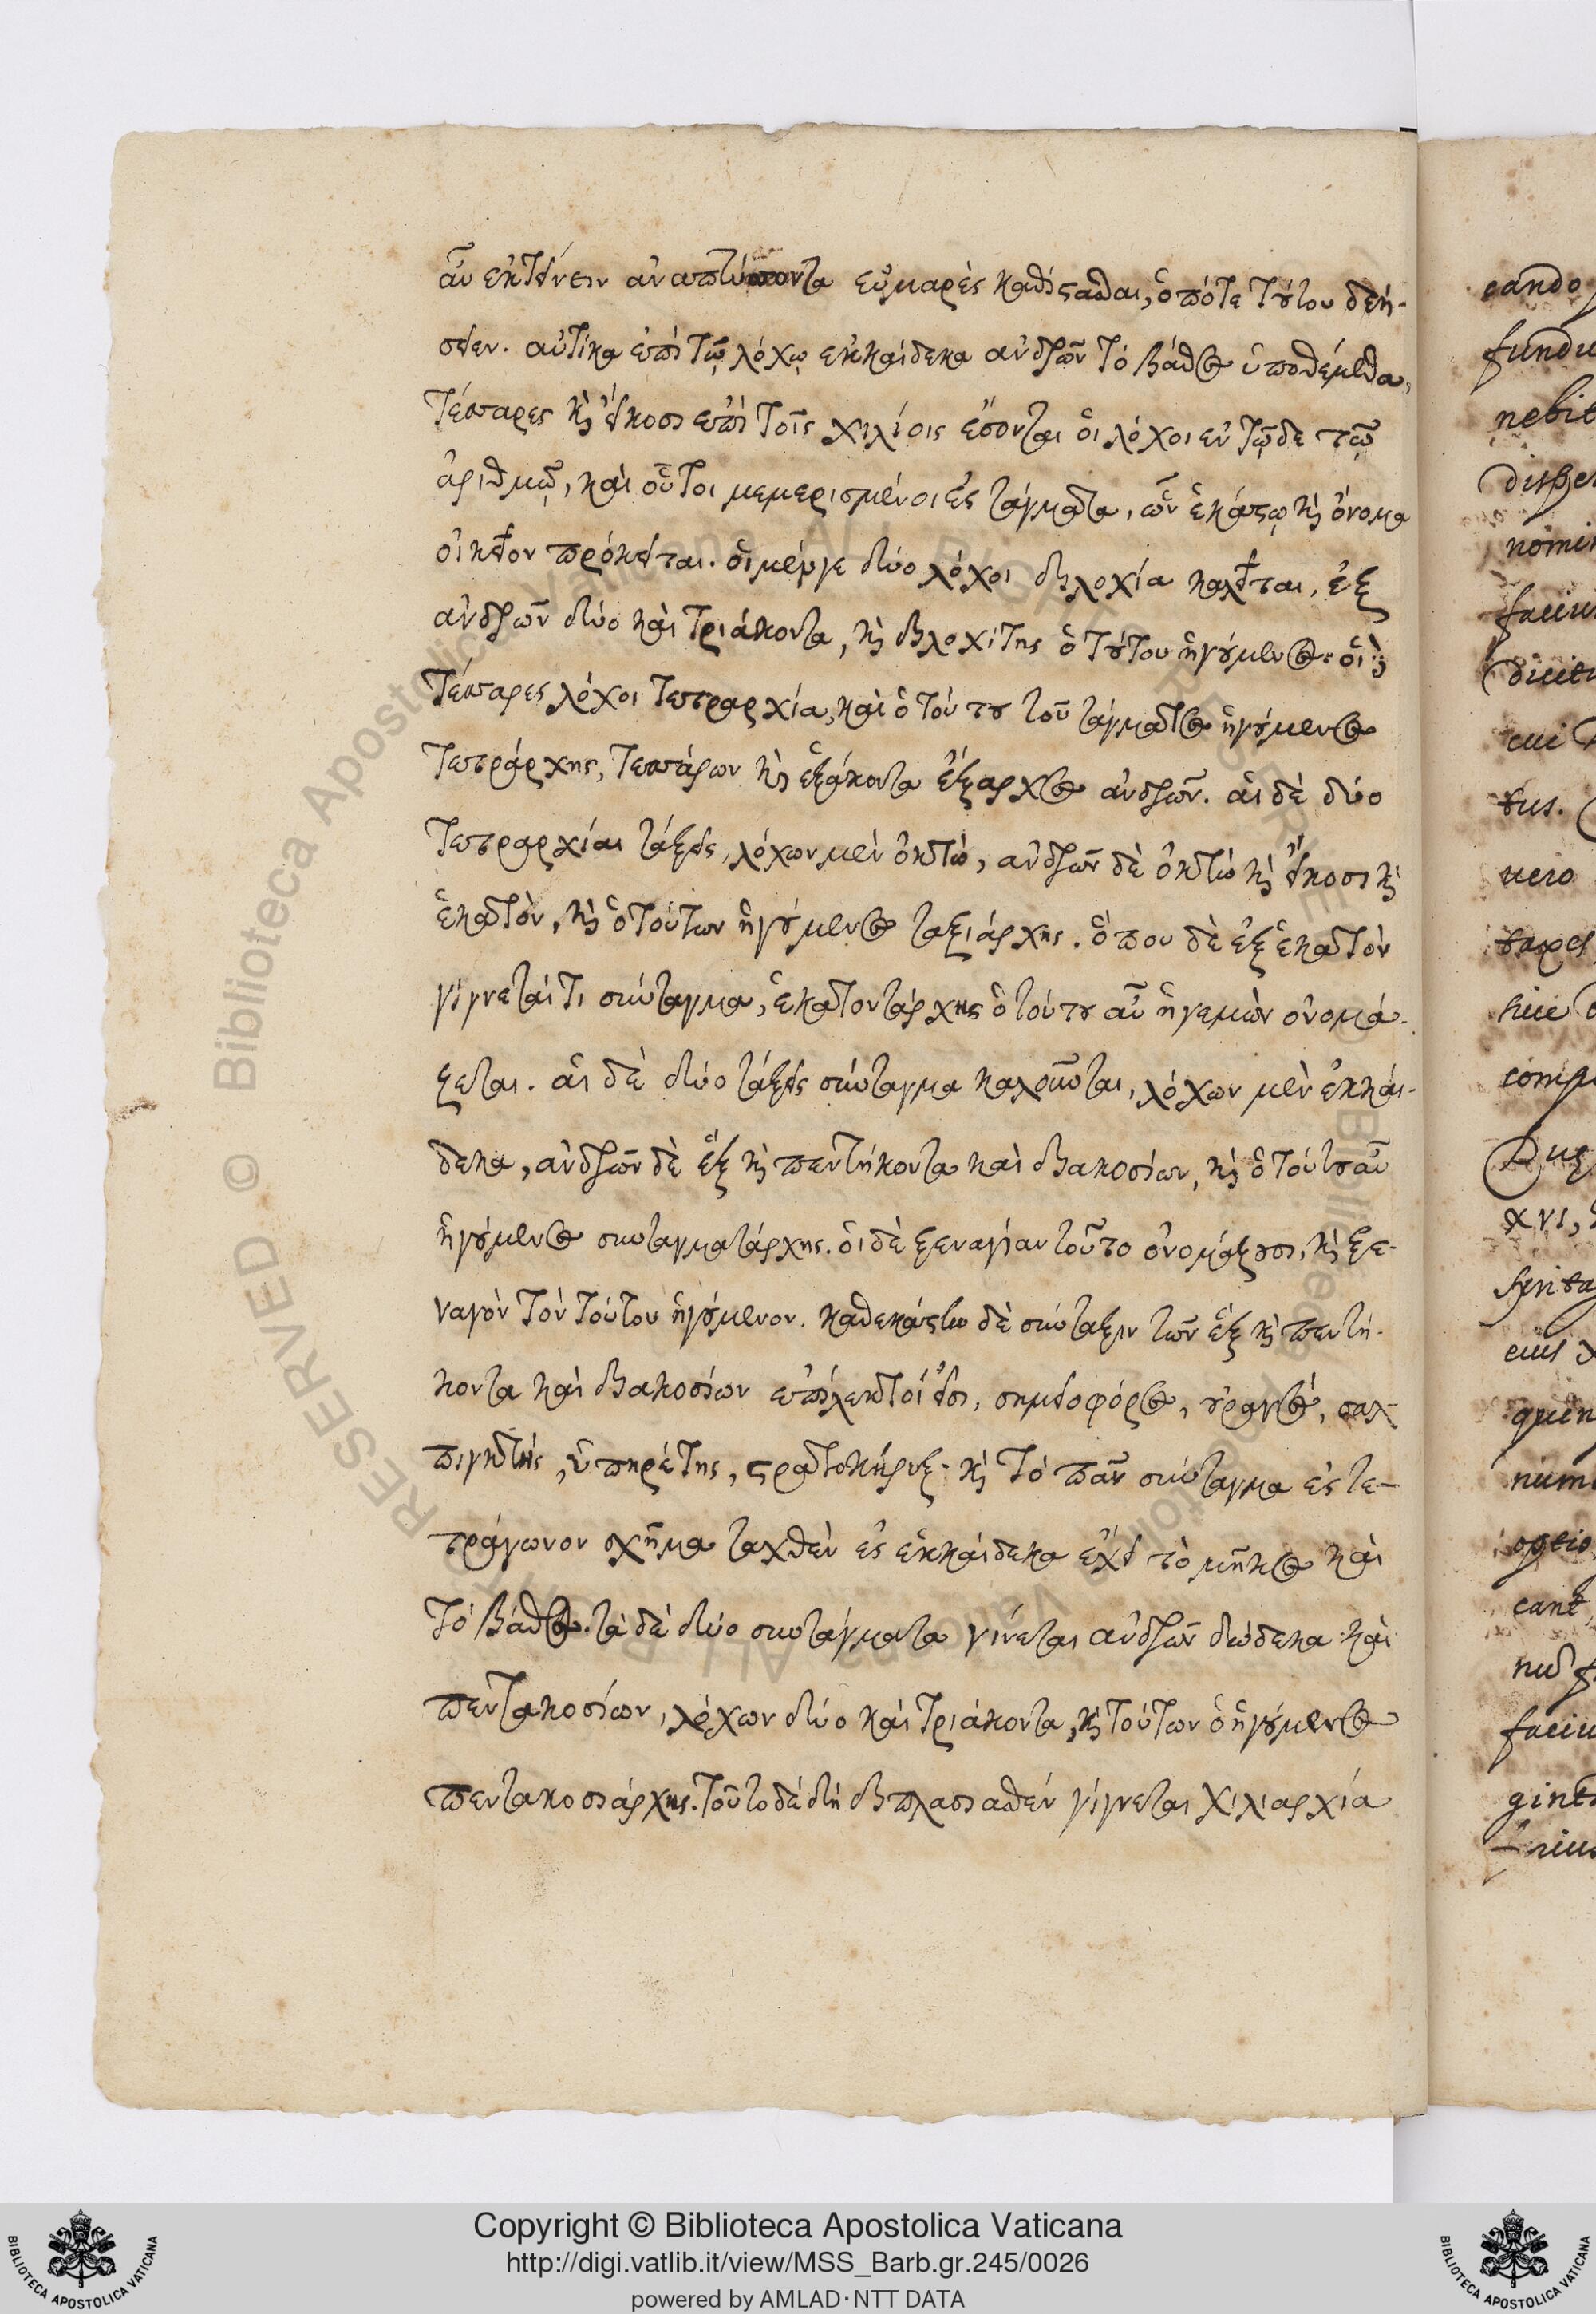 ἂν ἐκτείνειν ἀναπτύσσοντα εὐμαρὲς καθίστασθαι, ὁπότε τούτου δεή-
σειεν. αὐτίκα ἐπὶ τῷ λόχῳ ἑκκαίδεκα ἀνδρῶν τὸ βάθος ὑποθέμεθα,
τέσσαρες καὶ εἴκοσι ἐπὶ τοῖς χιλίοις ἔσονται οἱ λόχοι ἐν τῷδε τῷ
ἀριθμῷ, καὶ οὗτοι μεμερισμένοι ἐς τάγματα, ὧν ἑκάστῳ καὶ ὄνομα
οἰκεῖον πρόκειται. οἱ μέν γε δύο λόχοι διλοχία καλεῖται, ἐξ
ἀνδρῶν δύο καὶ τριάκοντα, καὶ διλοχίτης ὁ τούτου ἡγούμενος. οἱ δὲ
τέσσαρες λόχοι τετραρχία, καὶ ὁ τούτου τοῦ τάγματος ἡγούμενος
τετράρχης, τεσσάρων καὶ ἑξάκοντα ἔξαρχος ἀνδρῶν. αἱ δὲ δύο
τετραρχίαι τάξεις, λόχων μὲν ὀκτὼ, ἀνδρῶν δὲ ὀκτὼ καὶ εἴκοσι καὶ
ἑκατὸν, καὶ ὁ τούτων ἡγούμενος ταξιάρχης. ὅπου δὲ ἐξ ἑκατὸν
γίγνεταί τι σύνταγμα, ἑκατοντάρχης ὁ τούτου αὖ ἡγεμὼν ὀνομά-
ζεται. αἱ δὲ δύο τάξεις σύνταγμα καλοῦνται, λόχων μὲν ἑκκαί-
δεκα, ἀνδρῶν δὲ ἓξ καὶ πεντήκοντα καὶ διακοσίων, καὶ ὁ τούτου αὖ
ἡγούμενος συνταγματάρχης. οἱ δὲ ξεναγίαν τοῦτο ὀνομάζουσι, καὶ ξε-
ναγὸν τὸν τούτου ἡγούμενον. καθ' ἑκάστην δὲ σύνταξιν τῶν ἓξ καὶ πεντή-
κοντα καὶ διακοσίων ἐπίλεκτοί εἰσι, σημειοφόρος, οὐραγός, σαλ-
πιγκτής, ὑπηρέτης, στρατοκήρυξ· καὶ τὸ πᾶν σύνταγμα ἐς τε-
τράγωνον σχῆμα ταχθὲν ἐς ἑκκαίδεκα ἔχει τὸ μῆκος καὶ
τὸ βάθος. τὰ δὲ δύο συντάγματα γίνεται ἀνδρῶν δώδεκα καὶ
πεντακοσίων, λόχων δύο καὶ τριάκοντα, καὶ τούτων ὁ ἡγούμενος
πεντακοσιάρχης. τοῦτο δὲ δὴ διπλασιασθὲν γίγνεται χιλιαρχία
cando
fundu
nebit
disper
nomin
faciu
dicitu
cui
tus.
uero
taxes
huic
comp
Dux
xvi,
synta
eius
quin
nume
optio
cant
nus
faciu
gint
riu
Copyright © Biblioteca Apostolica Vaticana
http://digi.vatlib.it/view/MSS_Barb.gr.245/0026
powered by AMLAD·NTT DATA